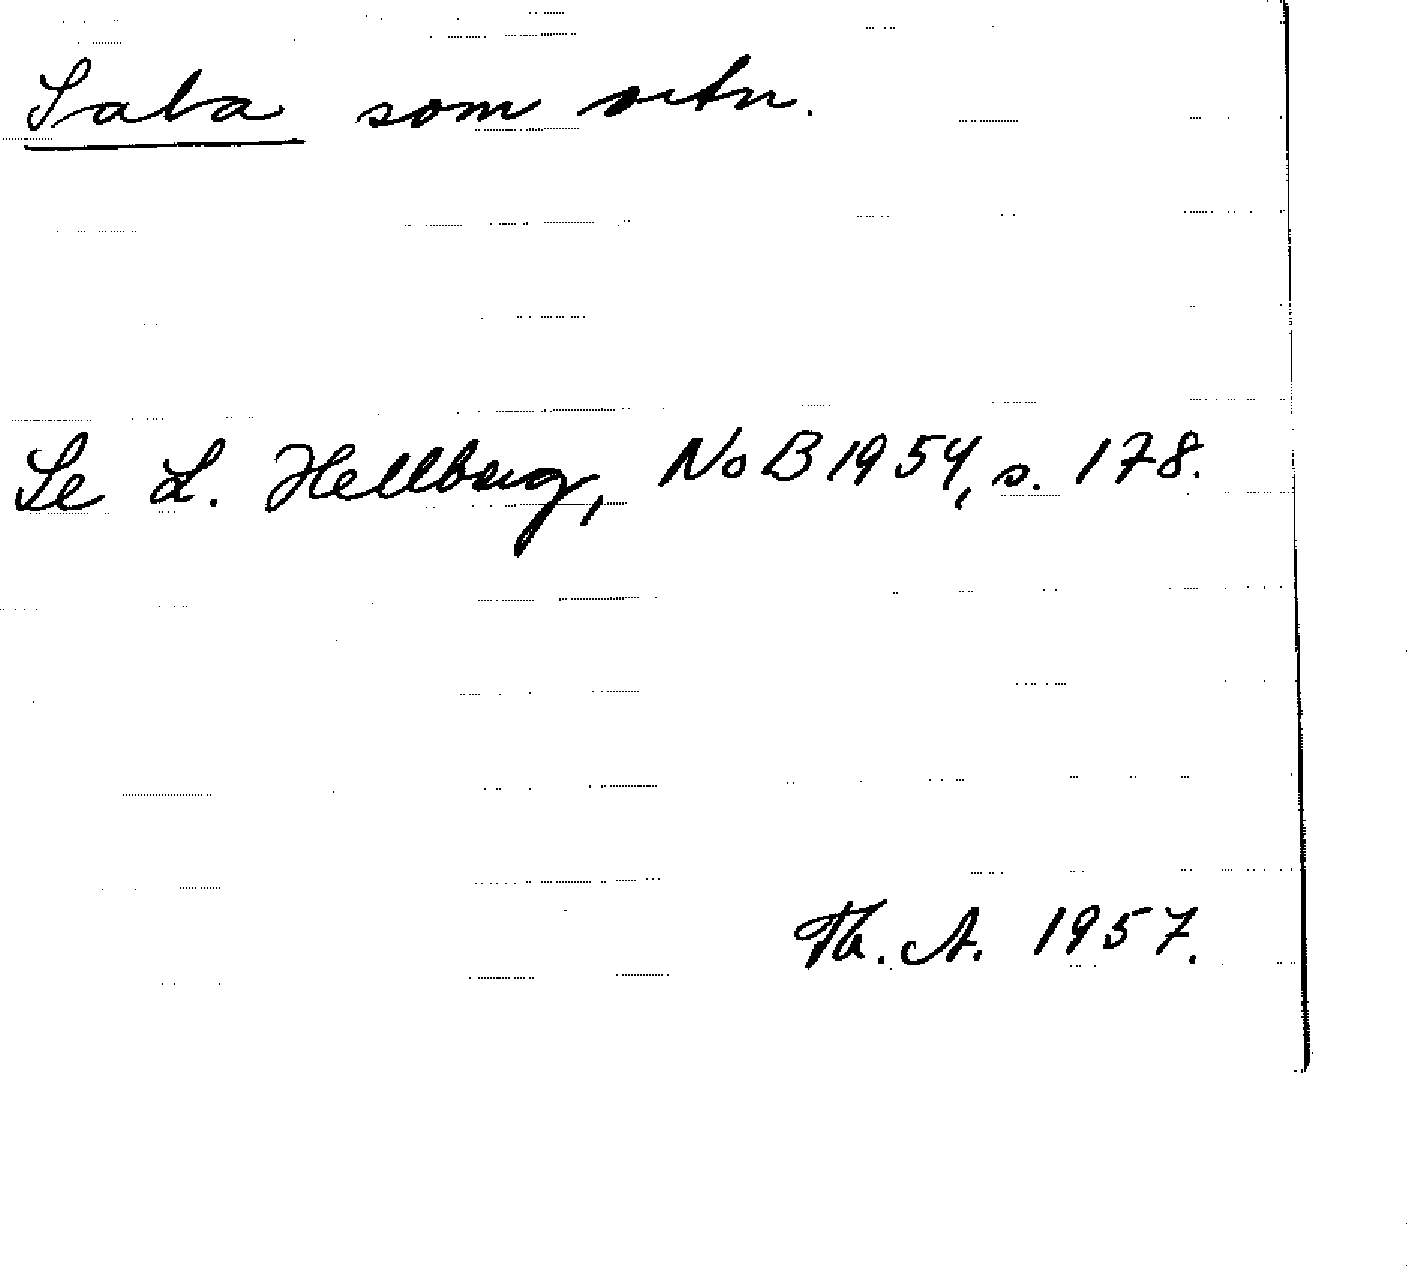 Sala som ortn.
Se L. Hellberg, NoB 1954, s. 178.
Th. A. 1957.